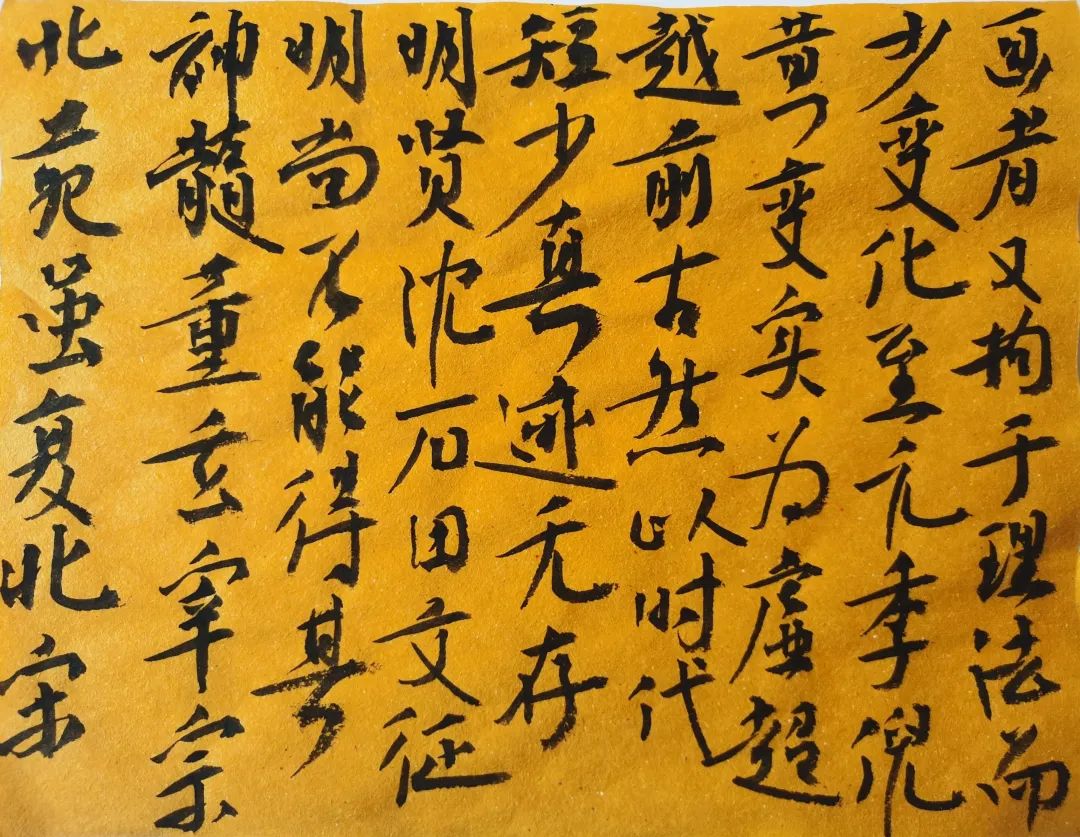 画者又拘于理法而
少变化至元季倪
昔一变实为虚超
越前古然以时代
短少真迹无存
明贤沈石田文征
明尚不能得其
神髓董玄宰宗
北苑虽夏北宋